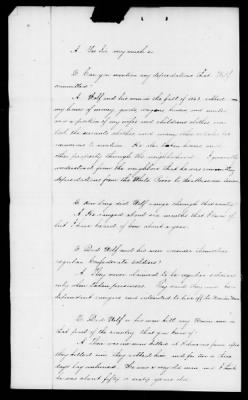 A. Yes Sir very much so.
Q. Can you mention any depredations that Wolf
committed?
A. Wolf and his men in the fall of 1863 robbed
my house of money, goods, wagons, and
a portion of my wife's and children's clothes and
bed the servants clothes, and many other articles too
numerous to mention. He also taken horses and
other property through the neighborhood. I generally
understood from the neighbors that he was committing
depredations from the White River to the Arkansas river.
Q. How long did Wolf range through this country?
A. He ranged about six months that I knew of
but I have heard of him about a year.
Q. Did Wolf and his men consider themselves
regular Confederate soldiers?
A. They never claimed to be regular soldiers
only when taken prisoners. They said they were in-
dependent rangers and intended to live off the
Q. Did Wolf or his men kill any Union men in
that part of the country that you know of?
A. There was one man killed at home after
they killed him they robbed him and for two or three
days lay unburied. He was a very old man and I think
he was about fifty or sixty years old.